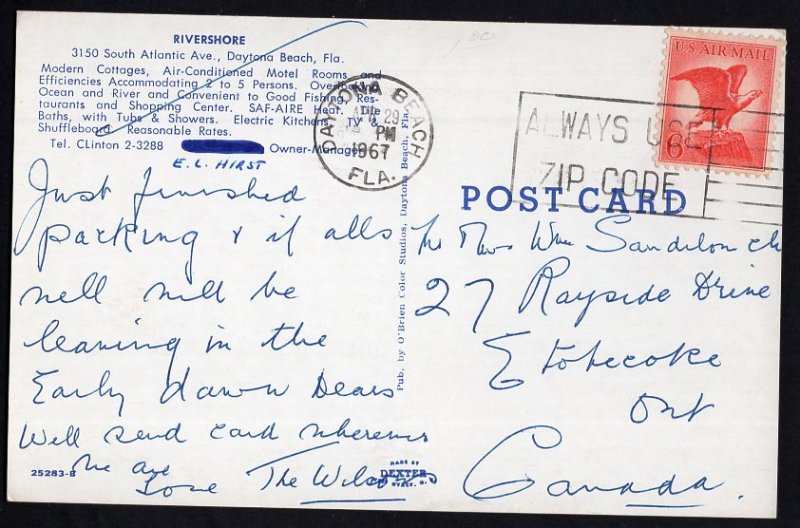 RIVERSHORE
3150 South Atlantic Ave., Daytona Beach, Fla.
Modern Cottages, Air-Conditioned Motel Rooms and
Efficiencies Accommodating 2 to 5 Persons. Overlooking
Ocean and River and Convenient to Good Fishing, Res-
taurants and Shopping Center. SAF-AIRE Heat. Tile
Baths, with Tubs & Showers. Electric Kitchens, TV &
Shuffleboard. Reasonable Rates.
Tel. CLinton 2-3288 Owner-Manager
E.L. HIRST
Just finished
packing & if alls
well will be
leaving in the
Early dawn Dears
Well send card wherever
we are
Love The Wilso
25283-B
MADE BY
DEXTER
Pub. by O'Brien Color Studios, Daytona Beach, Fla.
DAYTONA BEACH
29
PM
1967
FLA.
ALWAYS USE
ZIP CODE
U.S. AIR MAIL
6c
POST CARD
Mr Mrs Wm Sandilonck
27 Rayside Drive
Etobicoke
Ont
Canada